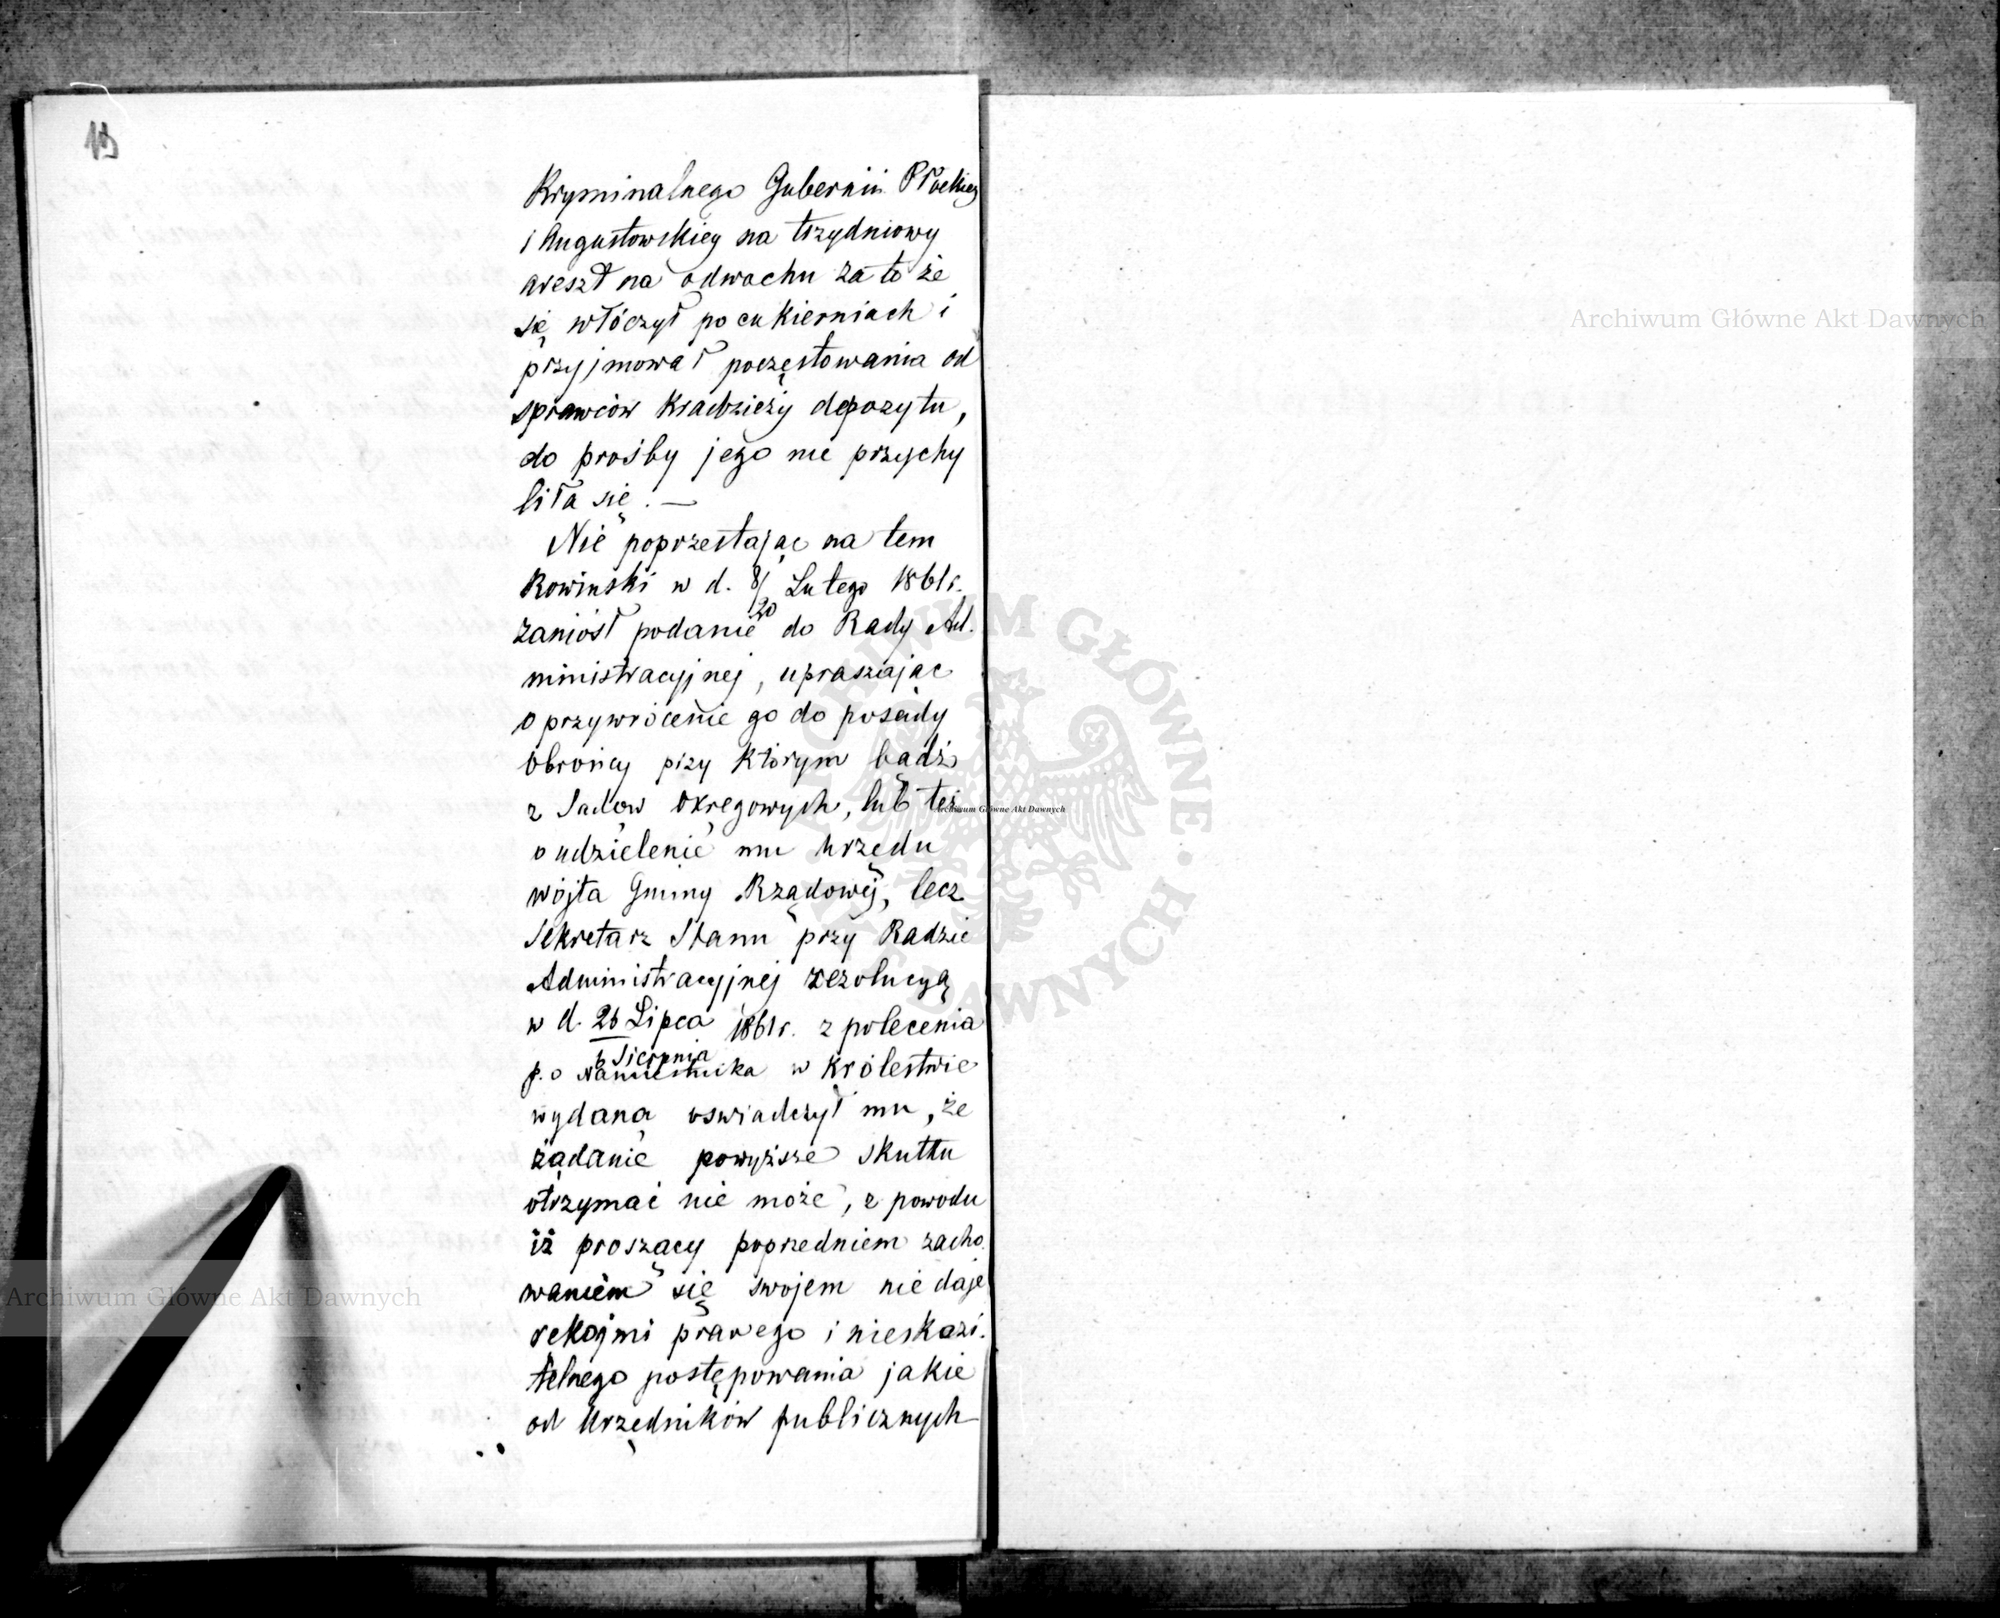 13
Kryminalnego Gubernii Płockiey
i Augustowskiey na trzydniowy
areszt na odwachu za to że
się włóczył po cukierniach i
przyjmował poczęstowania od
sprawców kradzieży depozytu,
do prośby jego nie przychy
liła się. —
Nie poprzestając na tem
Rowinski w d. 8/20 Lutego 1861 r.
zaniósł podanie do Rady Ad.
ministracyjnej, upraszając
o przywrócenie go do posady
obrońcy przy którym bądź
z Sądow Okręgowych, lub też
o udzielenie mu urzędu
wójta Gminy Rządowéj, lecz
Sekretarz Stanu przy Radzie
Administracyjnej rezolucyą
w d. 26 Lipca / 6 Sierpnia 1861 r. z polecenia
p. o Namiestnika w Królestwie
wydaną oswiadczył mu, że
żądanie powyższe skutku
otrzymać nie może, z powodu
iż proszący poprzedniem zacho.
waniem się swojem nie daje
rękojmi prawego i nieskazi.
telnego postępowania jakie
od Urzędników publicznych
Archiwum Główne Akt Dawnych
Archiwum Główne Akt Dawnych
Archiwum Główne Akt Dawnych
ARCHIWUM GŁÓWNE AKT DAWNYCH